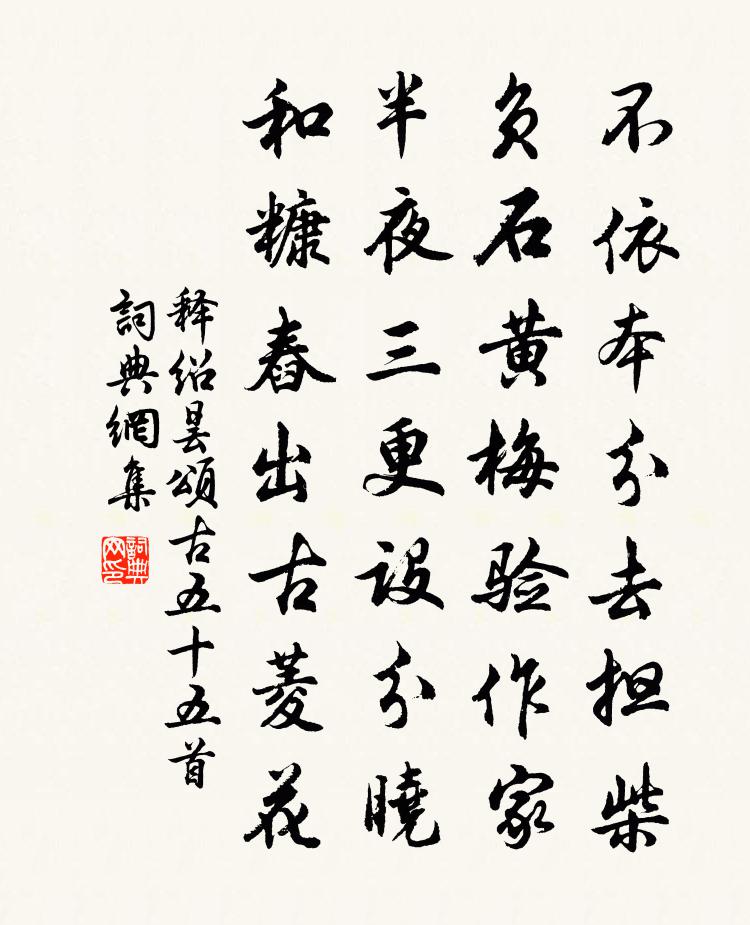 不依本分去担柴
负石黄梅验作家
半夜三更设分曉
和糠舂出古菱花
释绍昙頌古五十五首
詞典網集
詞典网印